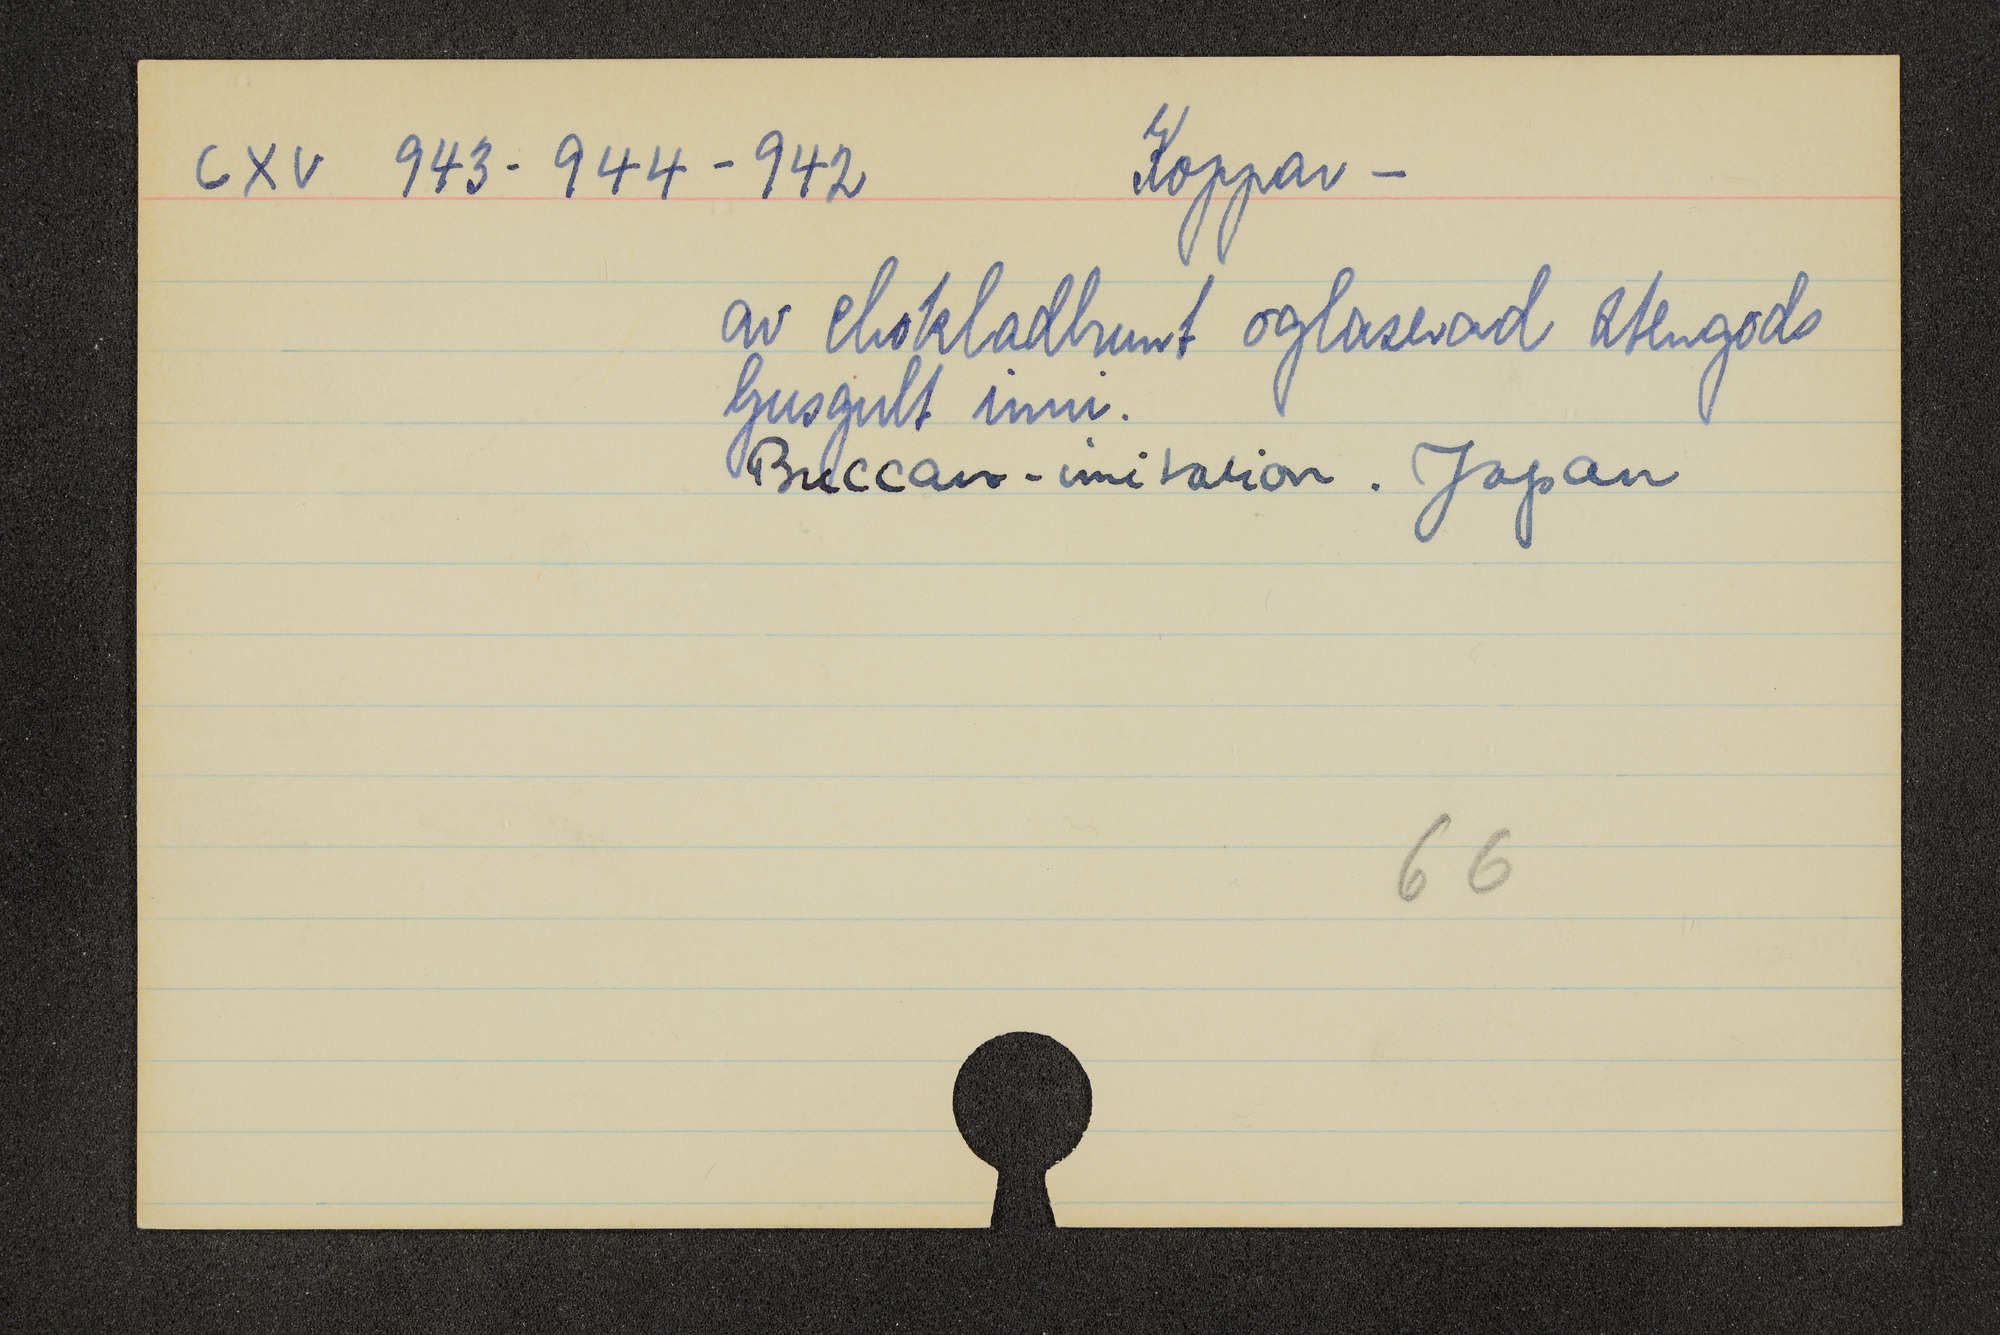 CXV 943-944-942 Koppar -
av chokladbrunt oglaserad stengods
ljusgult inni.
Buccaro-imitation. Japan
66